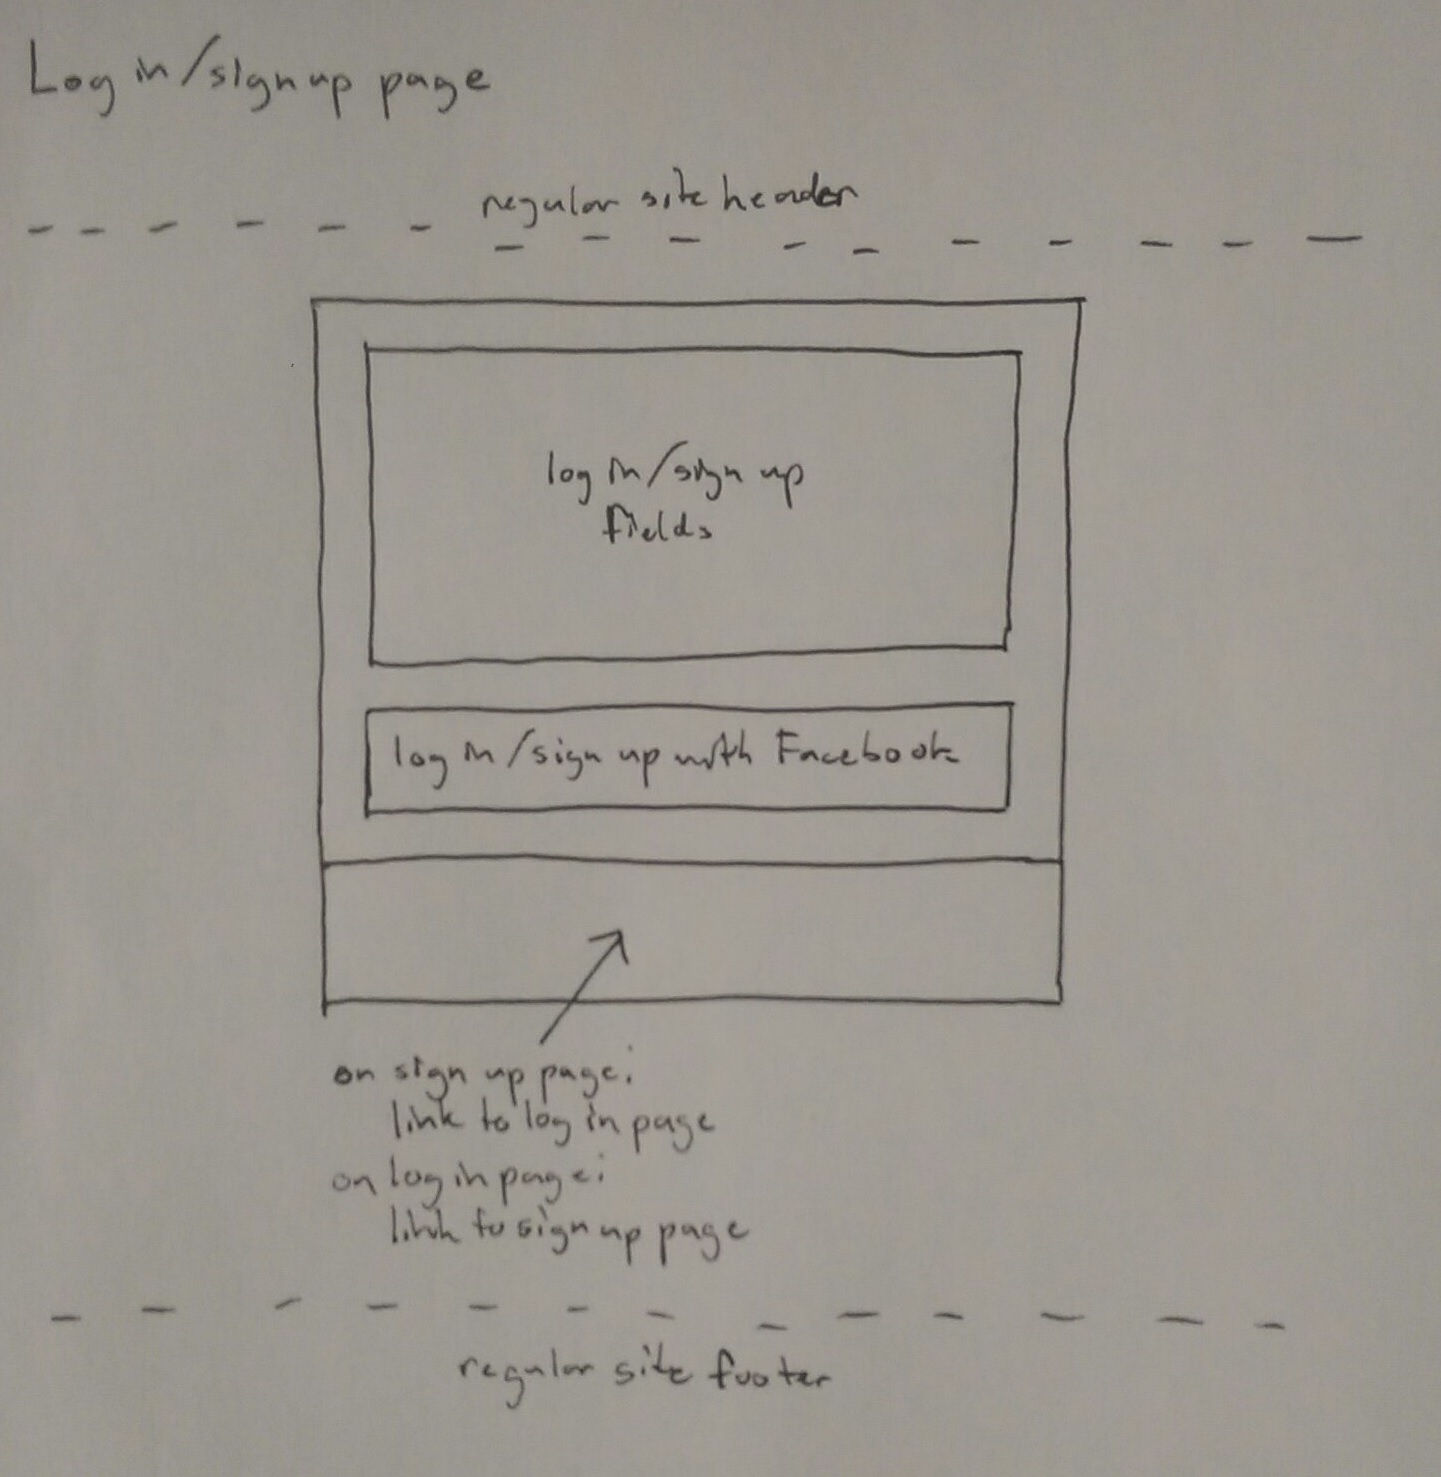 Log in/sign up page
regular site header
log in/sign up
fields
log in/sign up with Facebook
on sign up page:
link to log in page
on log in page:
link to sign up page
regular site footer